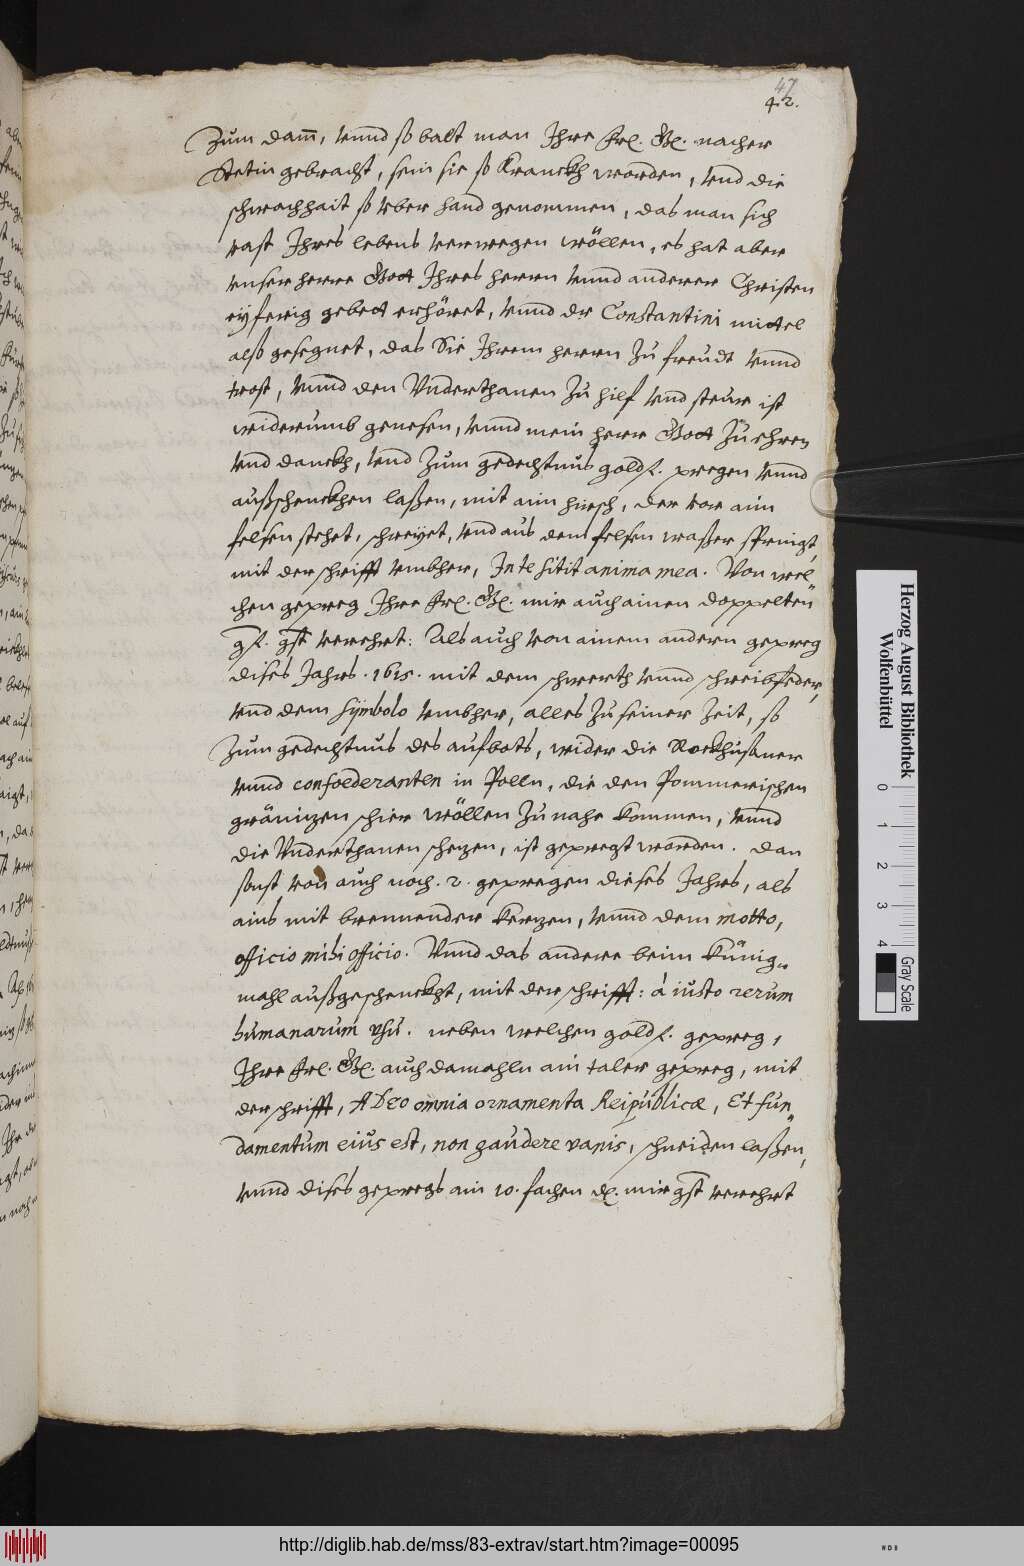 47
42.
Zum damm, vnnd so balt man Ihre frl. Gl. nacher
Stetin gebracht, sein sie so Kranckh worden, vnd die
schwachhait so vber hand genommen, das man sich
vast Ihres lebens verwegen wöllen, es hat aber
vnser herre Gott Ihres herrn vnnd anderer Christen
eyferig gebett erhöret, vnnd dz Constantini mittel
alß gesegnet, das Sie Ihrem herrn zu freudt vnnd
trost, vnnd den Vnderthanen zu hilf vnd steur ist
widerumb genesen, vnnd mein herr Gott zu ehren
vnd danckh, vnd zum gedechtnus goldf. pregen vnnd
außschenckhen laßen, mit aim hirsch, der vor aim
felsen stehet, schreyet, vnd aus dem felsen waßer springt,
mit der schrifft vmbher, In te sitit anima mea. Von wel„
chen gepreg Ihre frl. Gl. mir auch ainen doppelten
gf. gst verehrt: Als auch von ainem andern gepreg
dises Jahrs. 1615. mit dem schwerth vnnd schreibfeder,
vnd dem Symbolo vmbher, alles zu seiner zeit, so
zum gedechtnus des aufbots, wider die Rockhisaner
vnnd confoederanten in Polln, die den Pommerischen
gränizen schier wöllen zu nahe kommen, vnnd
die Vnderthanen schezen, ist gepregt worden. Dan
sonst von auch noch. 2. gepregen dieses Jahrs, als
ains mit brennender kerzen, vnnd dem motto,
officio mihi officio. Vnnd das andere beim Künig„
mahl außgeschenckht, mit der schrifft: á iusto rerum
humanarum vsu. neben welchen goldf. gepreg,
Ihre frl. Gl. auch damahln ain taler gepreg, mit
der schrifft, A Deo omnia ornamenta Reipublicæ, Et fun„
damentum eius est, non gaudere vanis, schneiden laßen,
vnnd dises gepregs ain 10. fachen mir gst verehrt
Herzog August Bibliothek
Wolfenbüttel
0 1 2 3 4
Gray Scale
http://diglib.hab.de/mss/83-extrav/start.htm?image=00095
WDB